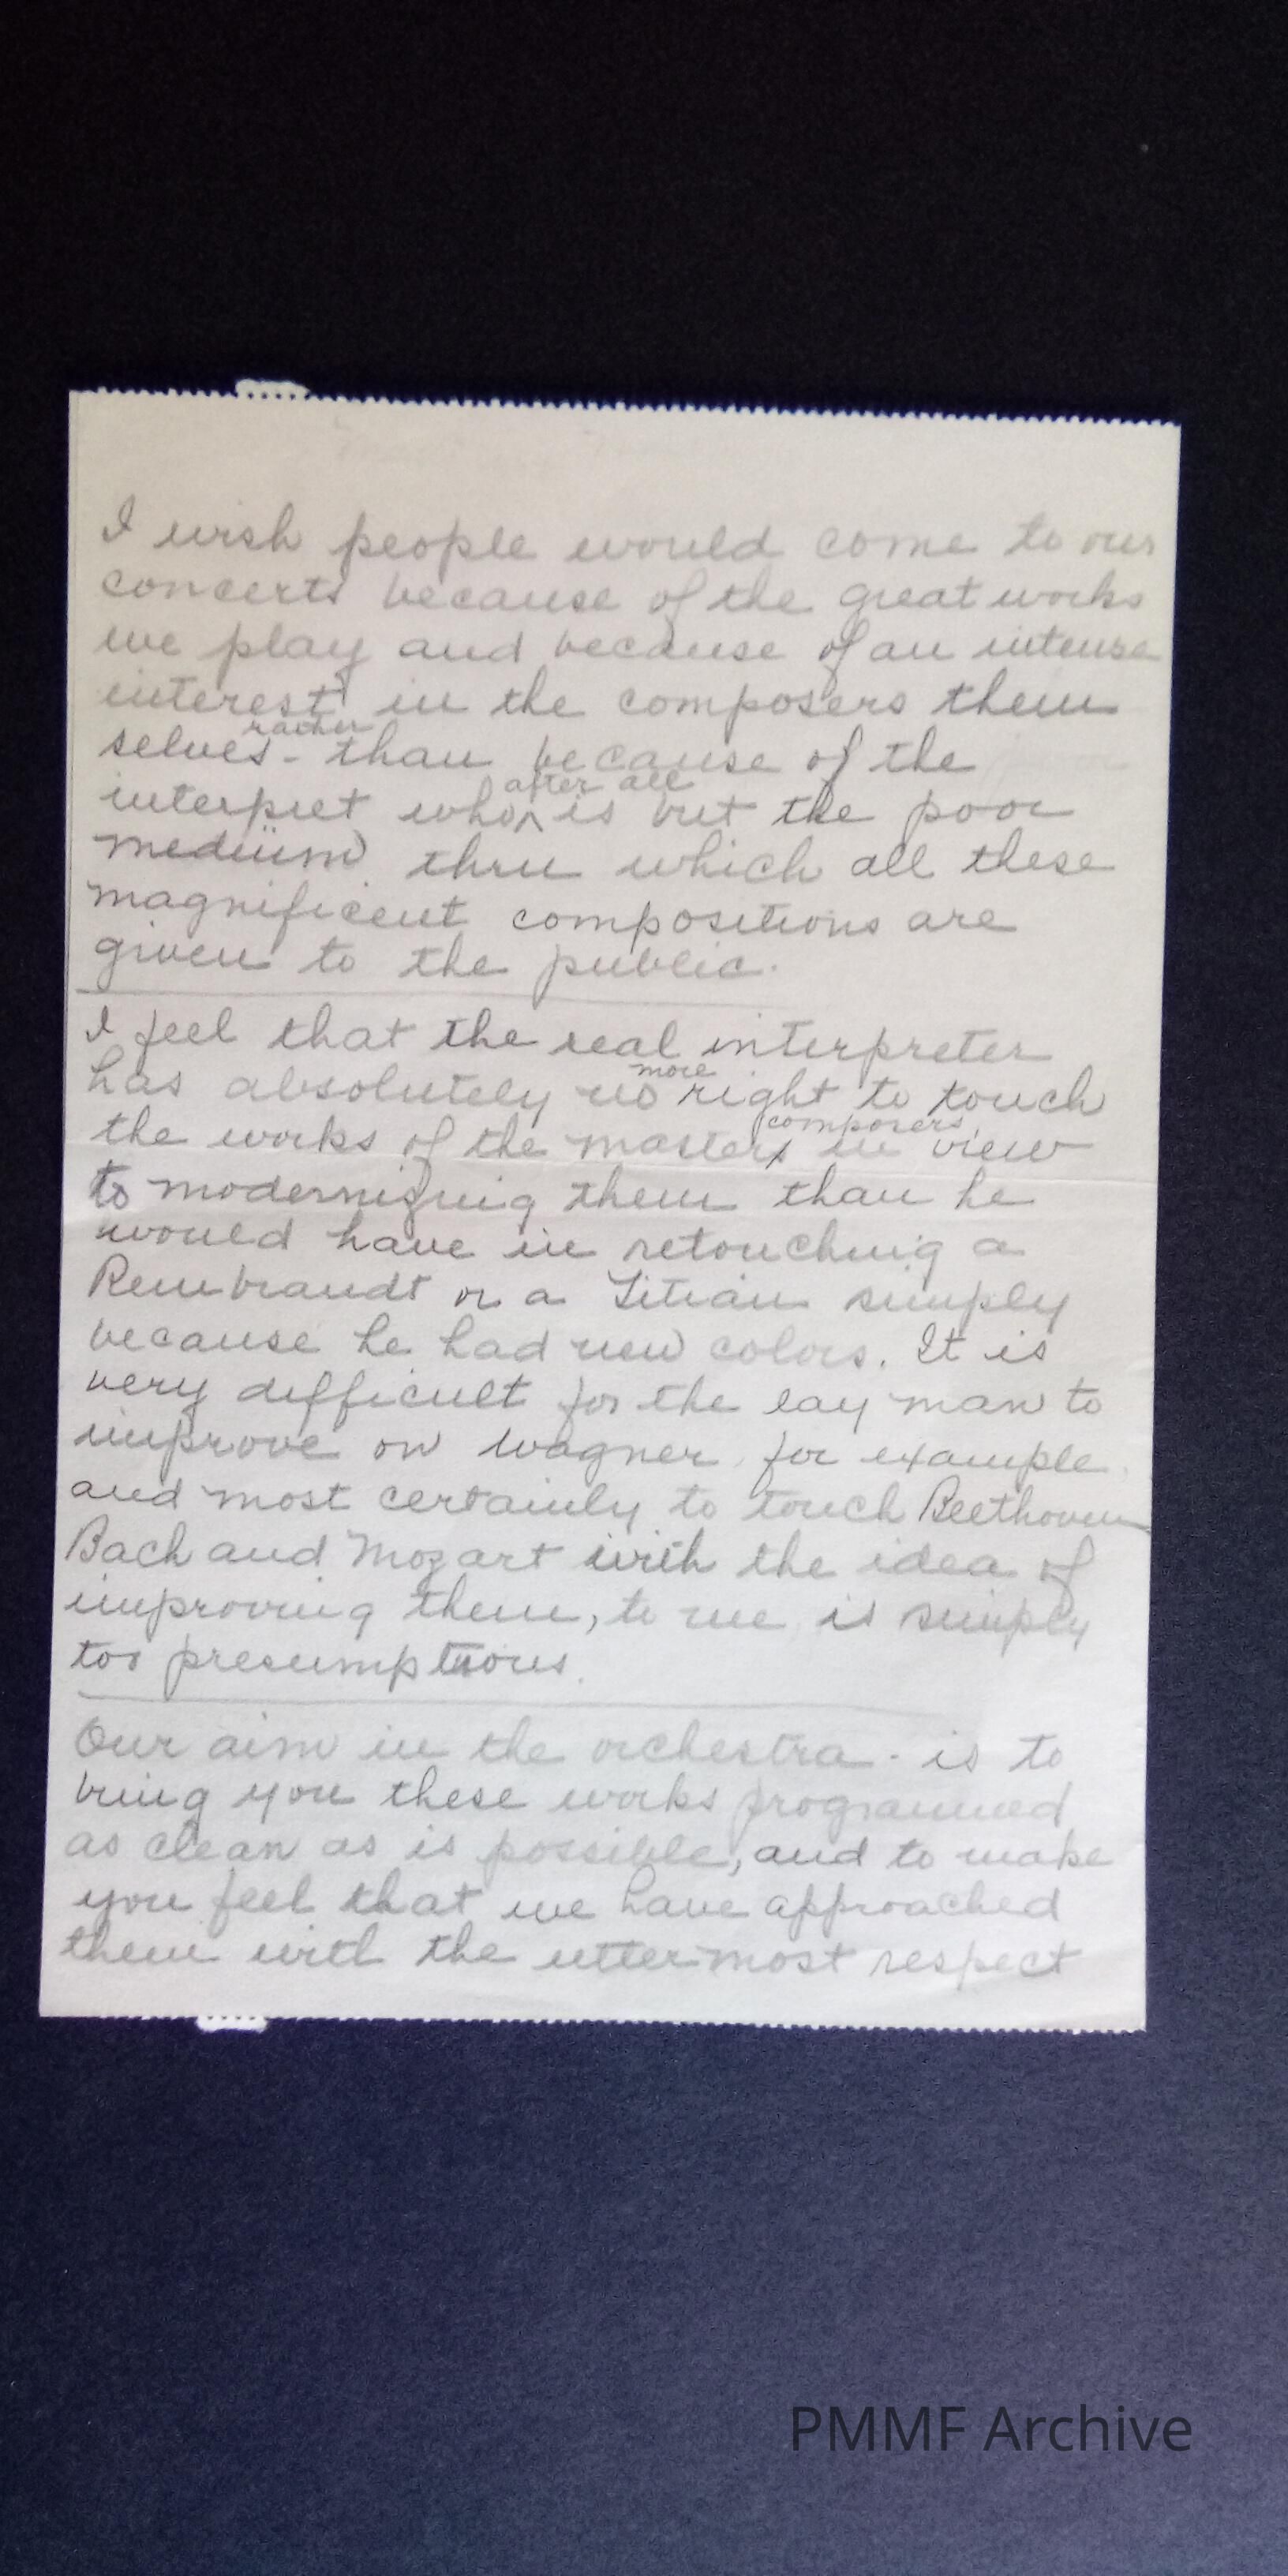 I wish people would come to our
concerts because of the great works
we play and because of an intense
interest in the composers them
rather
selves - than because of the
after all
interpret who ^ is but the poor
medium thru which all these
magnificent compositions are
given to the public.
I feel that the real interpreter
more
has absolutely no right to touch
composers
the works of the masters in view
to modernizing them than he
would have in retouching a
Rembrandt or a Titian simply
because he had new colors. It is
very difficult for the lay man to
improve on Wagner for example
and most certainly to touch Beethoven
Bach and Mozart with the idea of
improving them, to me is simply
too presumptuous.
Our aim in the orchestra - is to
bring you these works programmed
as clean as is possible, and to make
you feel that we have approached
them with the uttermost respect
PMMF Archive